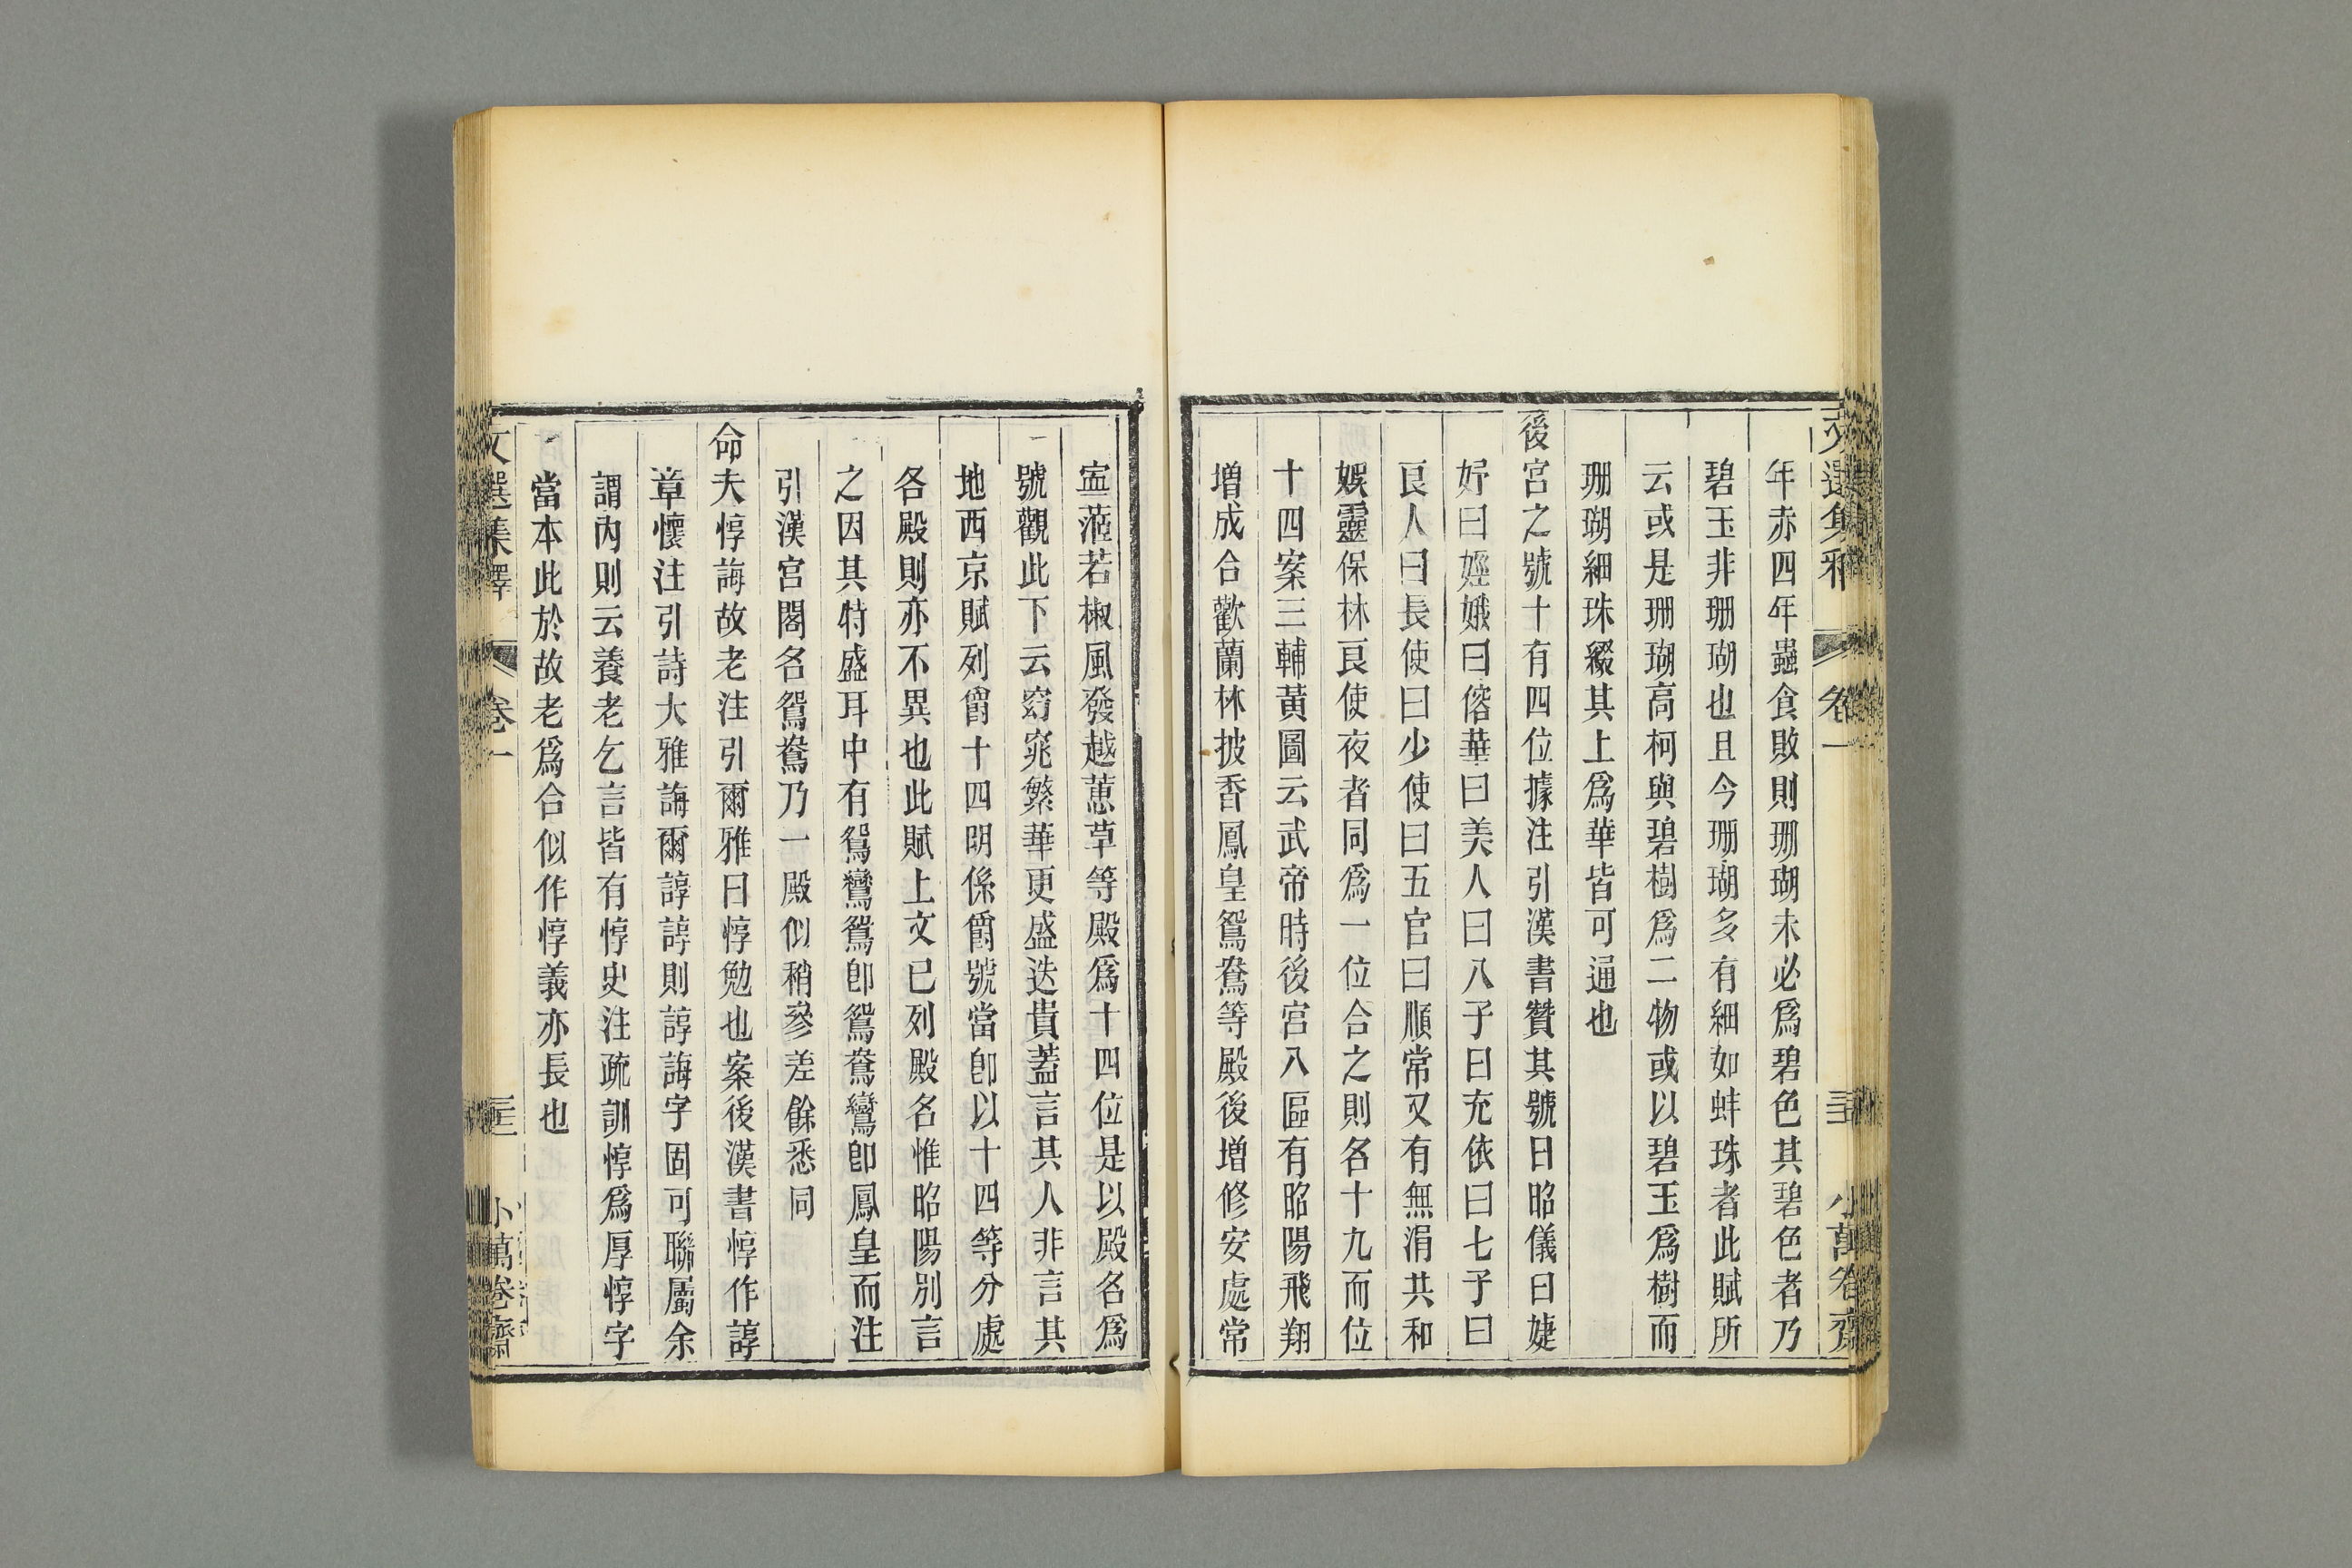 年赤四年蟲食敗則珊瑚未必爲碧色其碧色者乃
碧玉非珊瑚也且今珊瑚多有細如蚌珠者此賦所
云或是珊瑚高柯與碧樹爲二物或以碧玉爲樹而
珊瑚細珠綴其上爲華皆可通也
後宮之號十有四位據注引漢書贊其號曰昭儀曰婕
妤曰娙娥曰傛華曰美人曰八子曰充依曰七子曰
良人曰長使曰少使曰五官曰順常又有無涓共和
娛靈保林良使夜者同爲一位合之則各十九而位
十四案三輔黃圖云武帝時後宮八區有昭陽飛翔
增成合歡蘭林披香鳳皇鴛鴦等殿後增修安處常
寍茝若椒風發越蕙草等殿爲十四位是以殿名爲
號觀此下云窈窕繁華更盛迭貴蓋言其人非言其
地西京賦列爵十四明係爵號當卽以十四等分處
各殿則亦不異也此賦上文已列殿名惟昭陽別言
之因其特盛耳中有鴛鸞鴛卽鴛鴦鸞卽鳳皇而注
引漢宮閣名鴛鴦乃一殿似稍參差餘悉同
命夫惇誨故老注引爾雅曰惇勉也案後漢書惇作諄
章懷注引詩大雅誨爾諄諄則諄誨字固可聯屬余
謂內則云養老乞言皆有惇史注疏訓惇爲厚惇字
當本此於故老爲合似作惇義亦長也
文選集釋 卷一 小萬卷齋